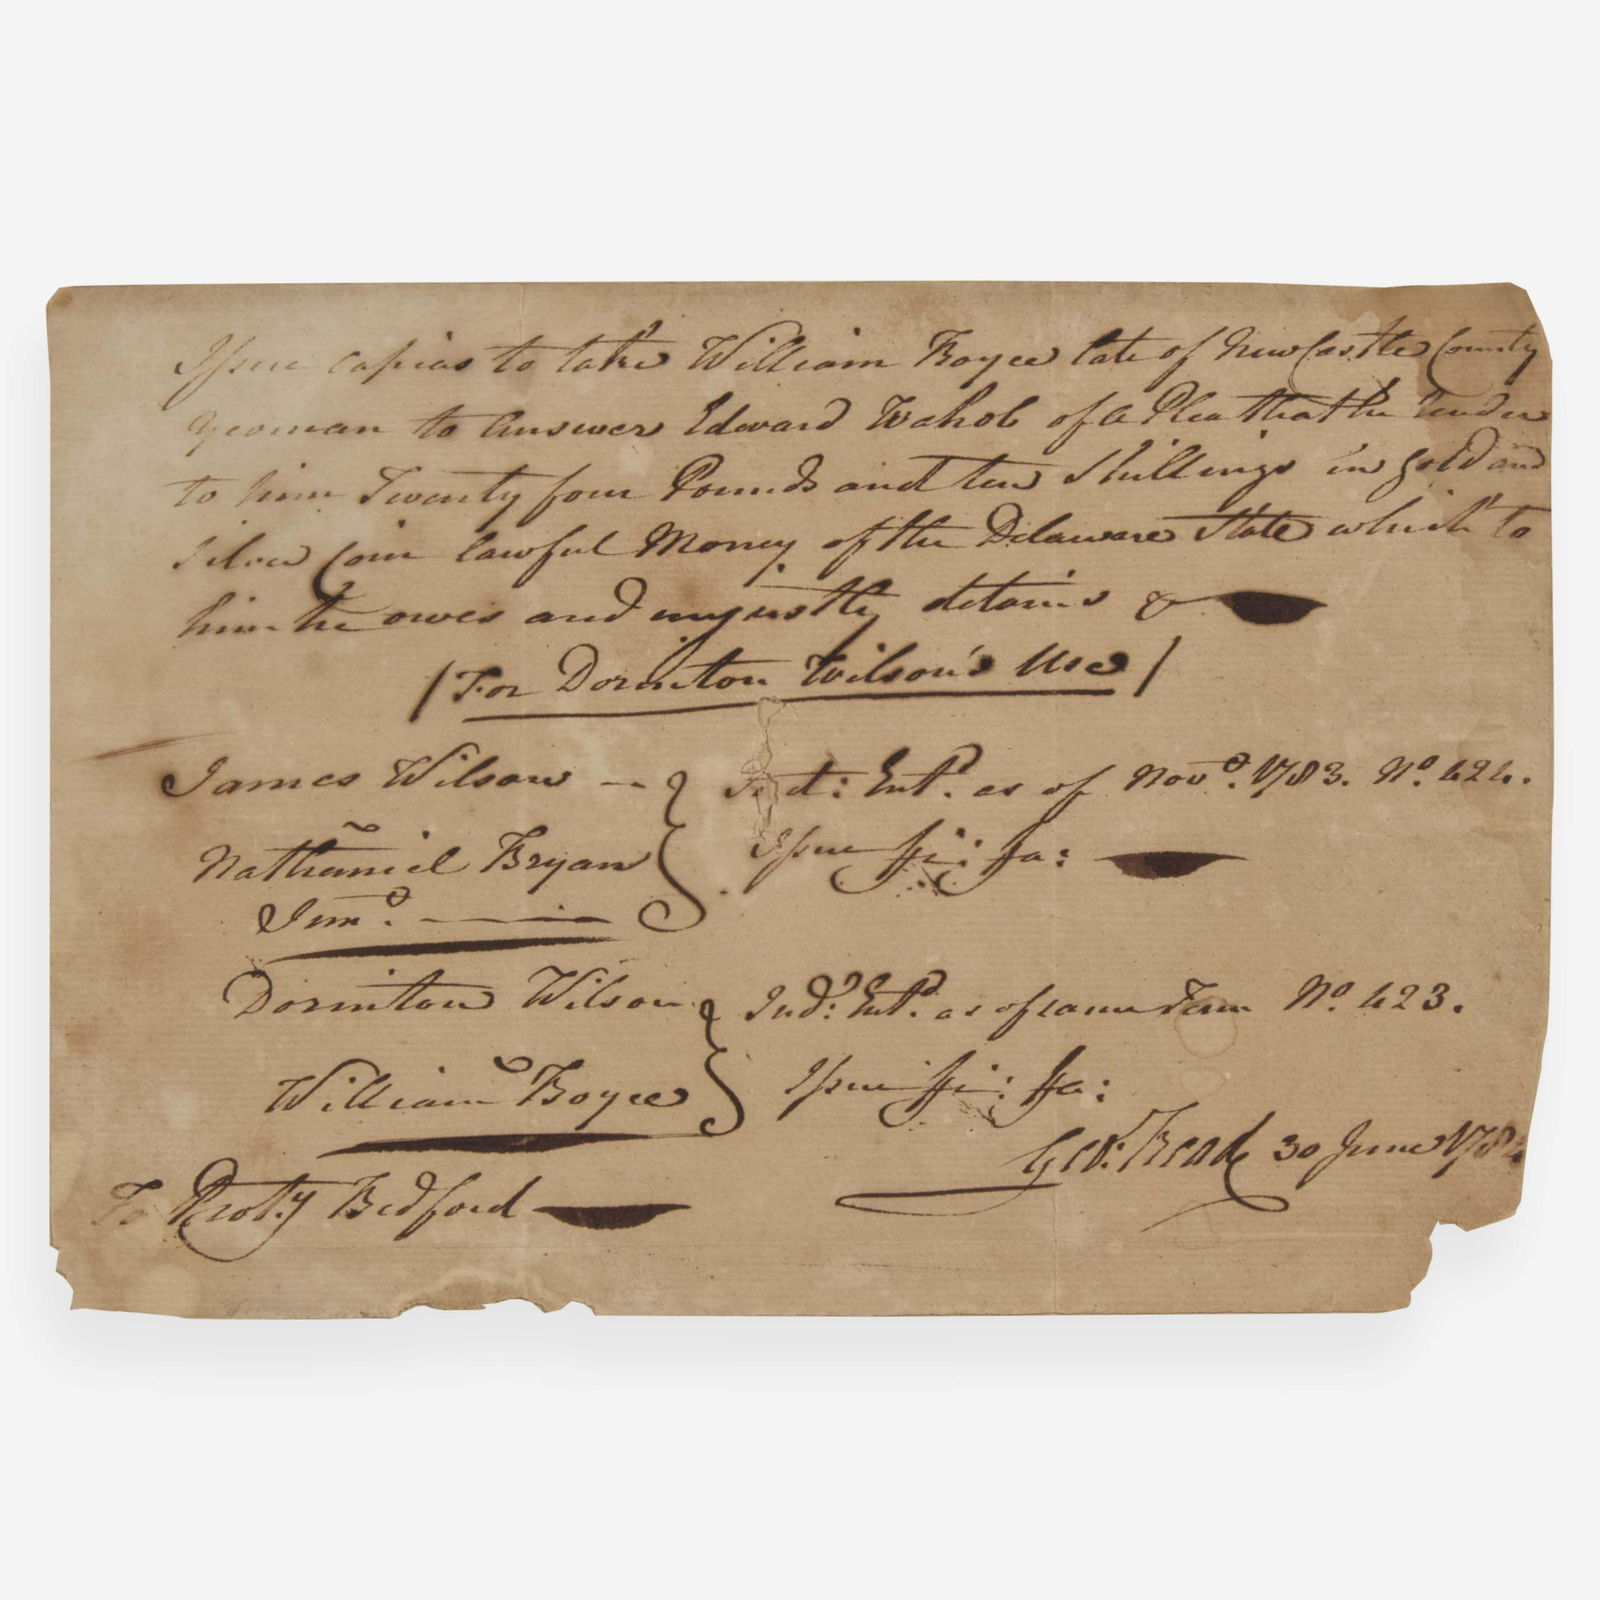 Issue capias to take William Boyce late of NewCastle County
yeoman to answer Edward Wahob of a Plea that he Render
to him Twenty four Pounds and ten Shillings in gold and
Silver Coin lawful Money of the Delaware State which to
him he owes and unjustly detains &
(For Dorinton Wilson's Use)
James Wilson — } Judt: Entd. as of Nov. 1783. No. 424.
Nathaniel Bryan } Issue fi: fa:
Junr.
Dorinton Wilson } Judt: Entd. as of same Term No. 423.
William Boyce } Issue fi: fa:
Geo: Read 30 June 1784
To Proty Bedford